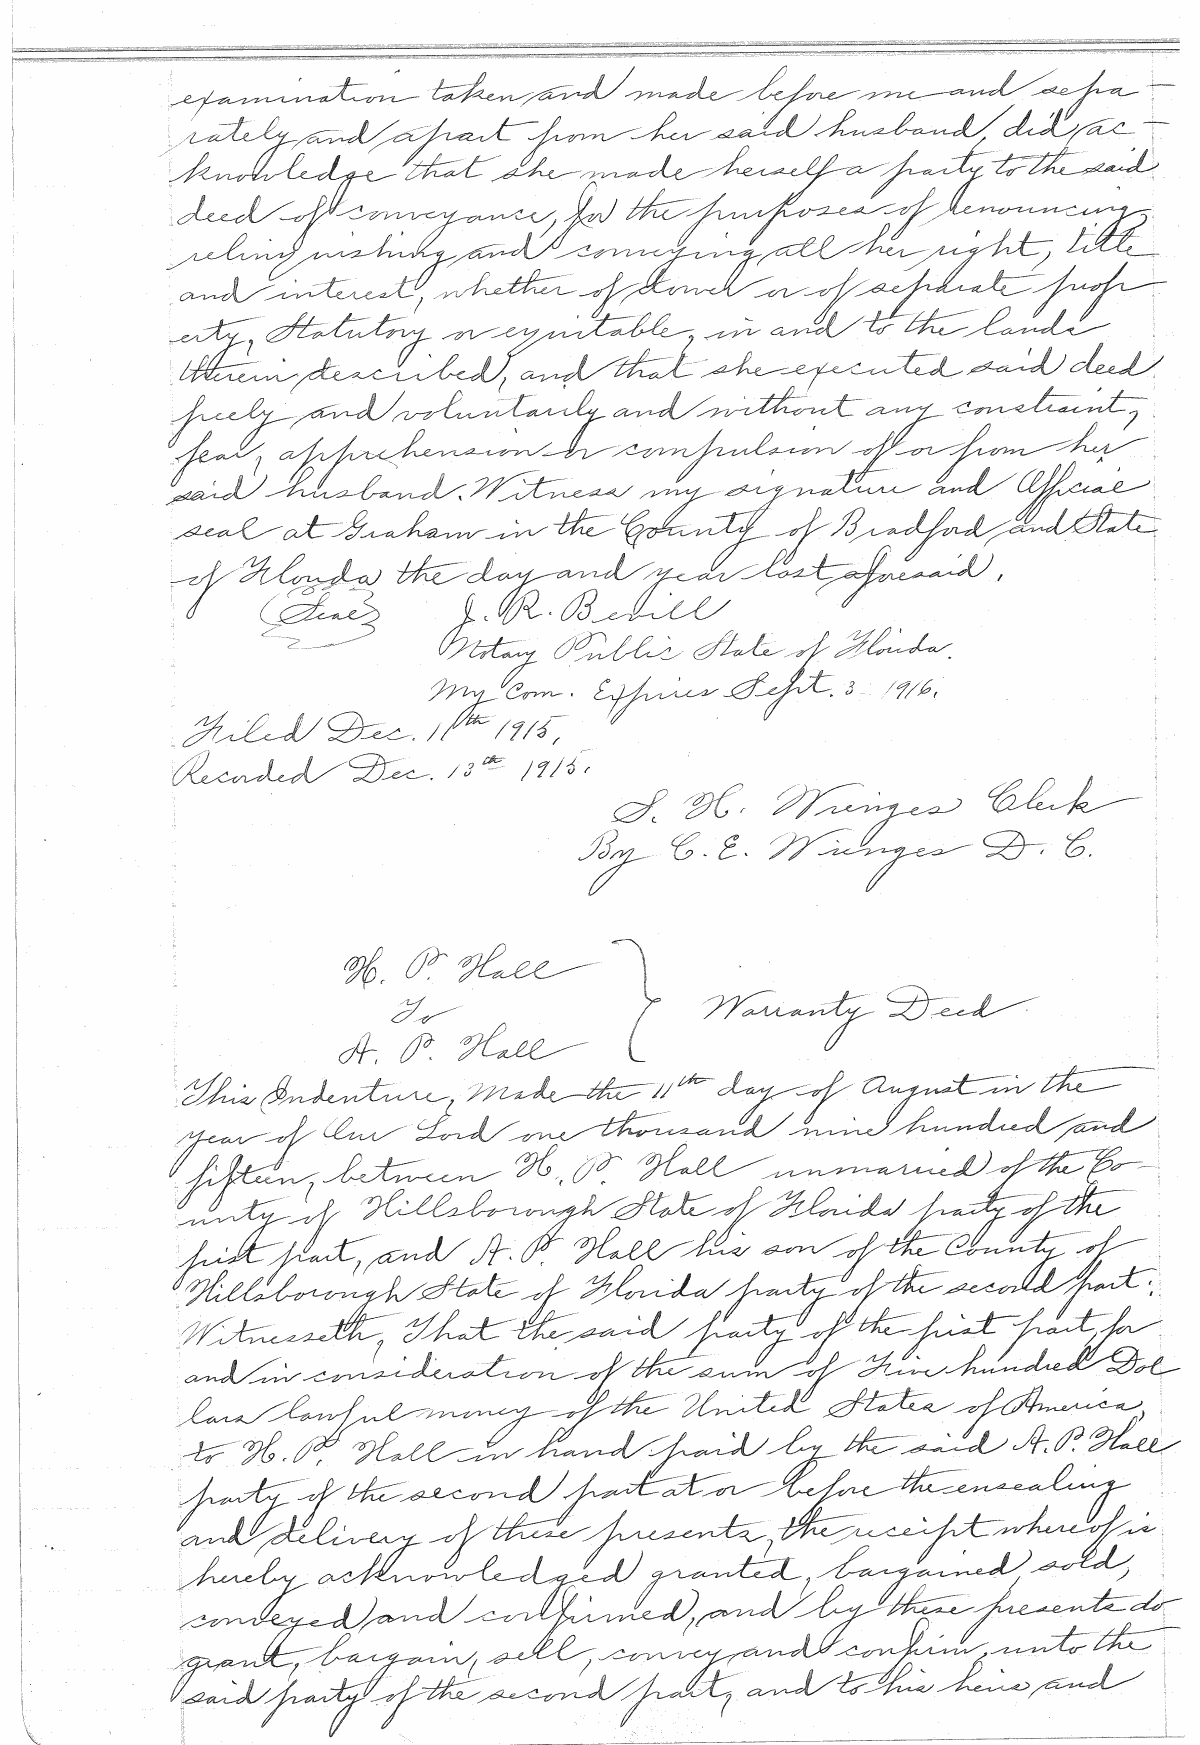 examination taken and made before me and sepa-
rately and apart from her said husband, did ac-
knowledge that she made herself a party to the said
deed of conveyance, for the purposes of renouncing,
relinquishing and conveying all her right, title
and interest, whether of dower or of separate prop
erty, Statutory or equitable, in and to the lands
therein described, and that she executed said deed
freely and voluntarily and without any constraint,
fear, apprehension or compulsion of or from her
said husband. Witness my signature and Official
seal at Graham in the County of Bradford and State
of Florida the day and year last aforesaid.
(Seal) J. R. Bevill
Notary Public State of Florida.
My Com. Expires Sept. 3 1916.
Filed Dec. 11th 1915,
Recorded Dec. 13th 1915.
S. H. Wienges Clerk
By C. E. Wienges D. C.
H. P. Hall
To
A. P. Hall
Warranty Deed
This Indenture, Made the 11th day of August in the
year of Our Lord one thousand nine hundred and
fifteen, between H. P. Hall unmarried of the Co-
unty of Hillsborough State of Florida party of the
first part, and A. P. Hall his son of the County of
Hillsborough State of Florida party of the second part:
Witnesseth, That the said party of the first part, for
and in consideration of the sum of Five hundred Dol
lars lawful money of the United States of America,
to H. P. Hall in hand paid by the said A. P. Hall
party of the second part at or before the ensealing
and delivery of these presents, the receipt whereof is
hereby acknowledged granted, bargained, sold,
conveyed and confirmed, and by these presents do
grant, bargain, sell, convey and confirm, unto the
said party of the second part, and to his heirs and